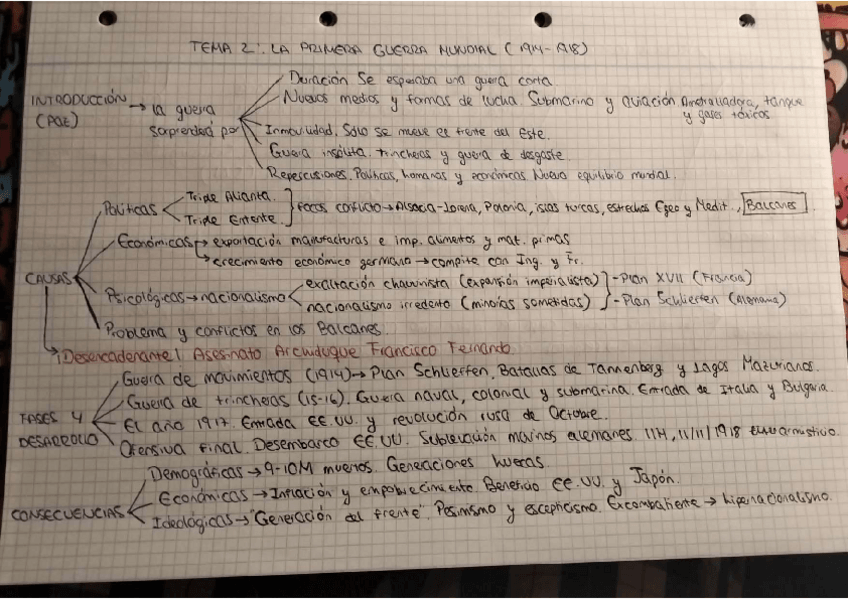 TEMA 2: LA PRIMERA GUERRA MUNDIAL (1914-1918)
INTRODUCCIÓN (PAE) → la guerra sorprenderá por
Duración Se esperaba una guerra corta
Nuevos medios y formas de lucha. Submarino y aviación Ametralladora, tanque y gases tóxicos
Inmovilidad. Sólo se mueve el frente del Este.
Guerra insólita. trincheras y guerra de desgaste
Repercusiones. Políticas, humanas y económicas Nuevo equilibrio mundial.
CAUSAS
Políticas
Triple Alianza.
Triple Entente.
focos conflicto → Alsacia-Lorena, Polonia, islas turcas, estrechos Egeo y Medit., Balcanes
Económicas → exportación manufacturas e imp. alimentos y mat. primas
→ crecimiento económico germano → compite con Ing. y Fr.
Psicológicas → nacionalismo
exaltación chauvinista (expansión imperialista)
nacionalismo irredento (minorías sometidas)
- Plan XVII (Francia)
- Plan Schlieffen (Alemania)
Problema y conflictos en los Balcanes
→ ¡Desencadenante! Asesinato Archiduque Francisco Fernando
FASES Y DESARROLLO
Guerra de movimientos (1914) → Plan Schlieffen. Batallas de Tannenberg y Lagos Mazurianos.
Guerra de trincheras (15-16). Guerra naval, colonial y submarina. Entrada de Italia y Bulgaria.
El año 1917. Entrada EE.UU. y revolución rusa de Octubre.
Ofensiva final. Desembarco EE.UU. Sublevación marinos alemanes 11H, 11/11/1918
CONSECUENCIAS
Demográficas → 9-10M muertos. Generaciones huecas.
Económicas → Inflación y empobrecimiento. Beneficio EE.UU. y Japón.
Ideológicas → "Generación del frente". Pesimismo y escepticismo. Excombatiente → hipernacionalismo.